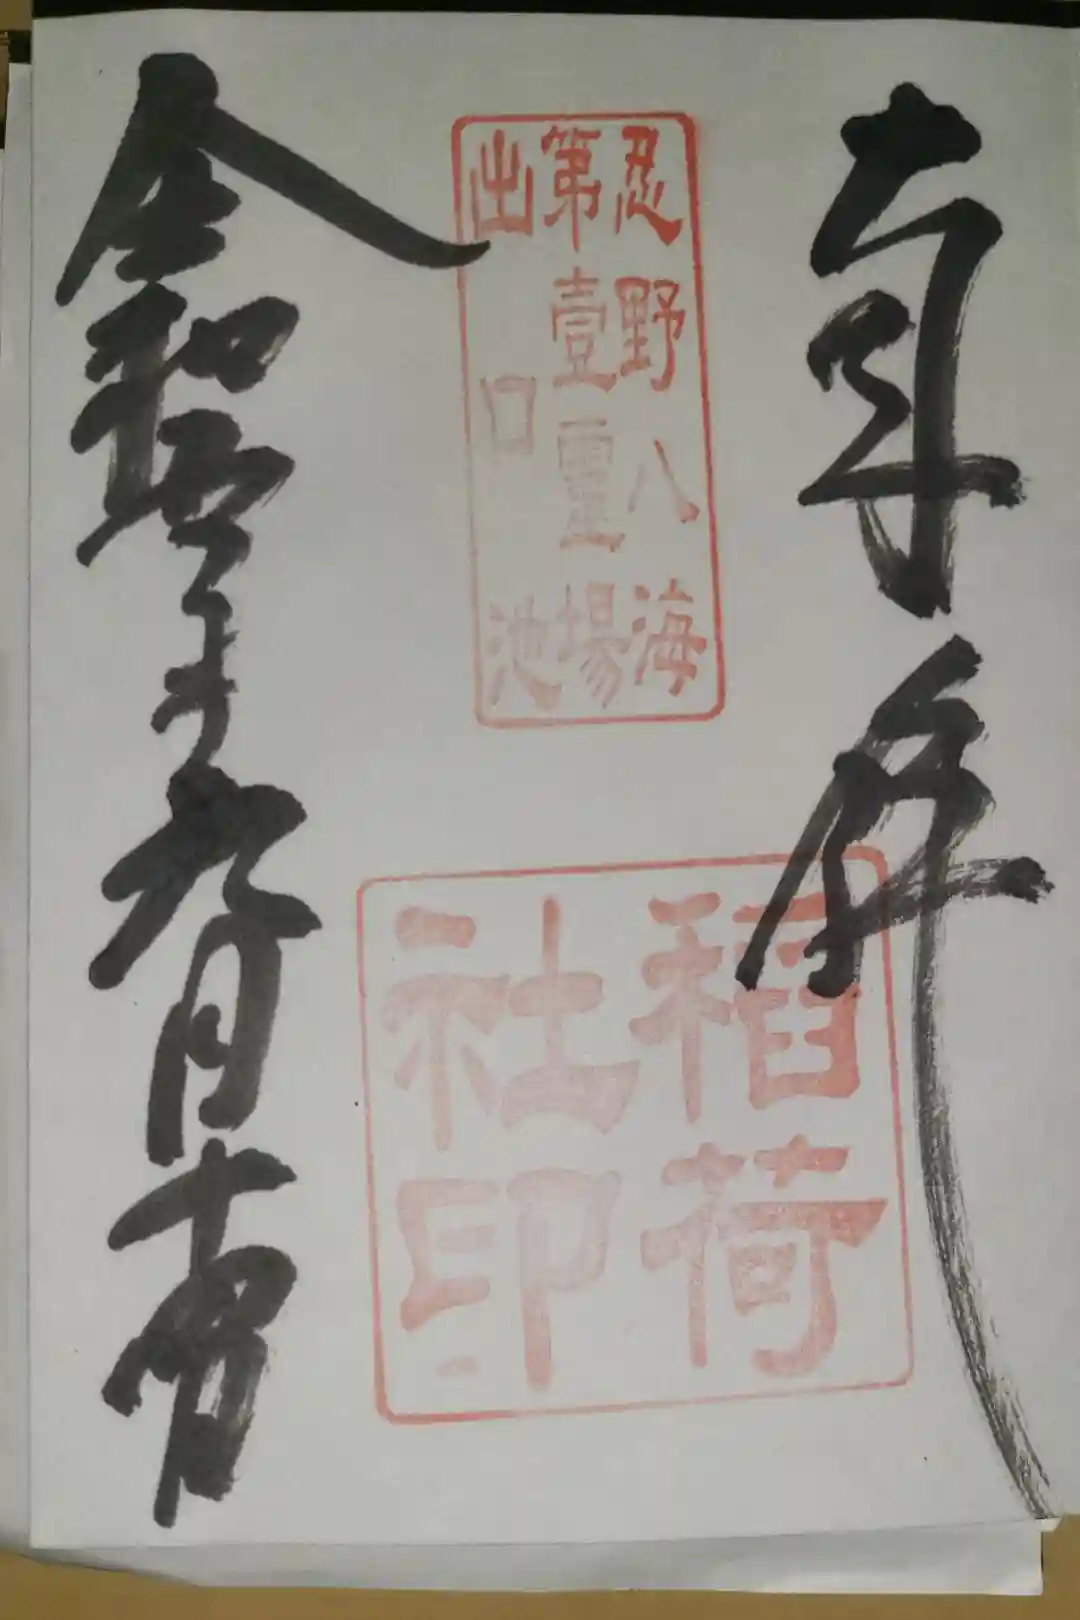 奉拝
忍野八海
第壹霊場
出口池
稲荷
社印
令和四年九月十一日